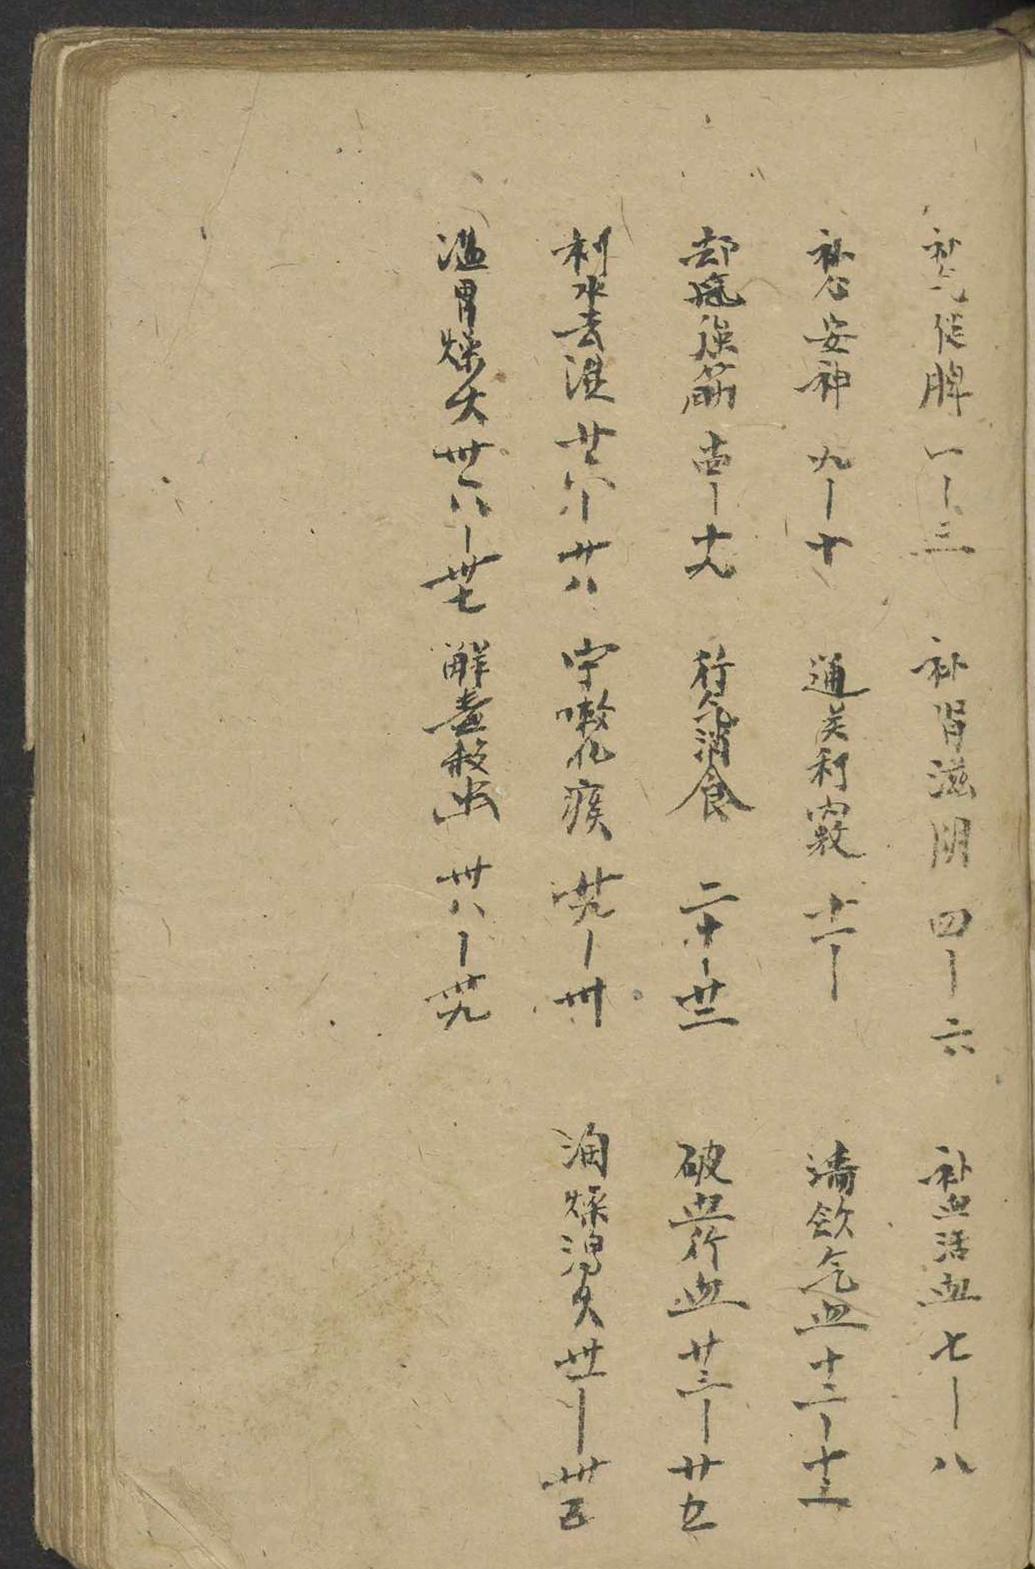 补气健脾 一｜三 补肾滋阴 四｜六 补血活血 七｜八
补心安神 九｜十 通关利窍 十一｜ 清欽气血 十二｜十三
却风强筋 十四｜十九 行气消食 二十｜廿二 破血行血 廿三｜廿五
利水去湿 廿六｜廿八 宁嗽化痰 廿九｜卅 润燥泻火 卅一｜卅五
温胃燥火 卅六｜卅七 解毒殺虫 卅八｜卅九